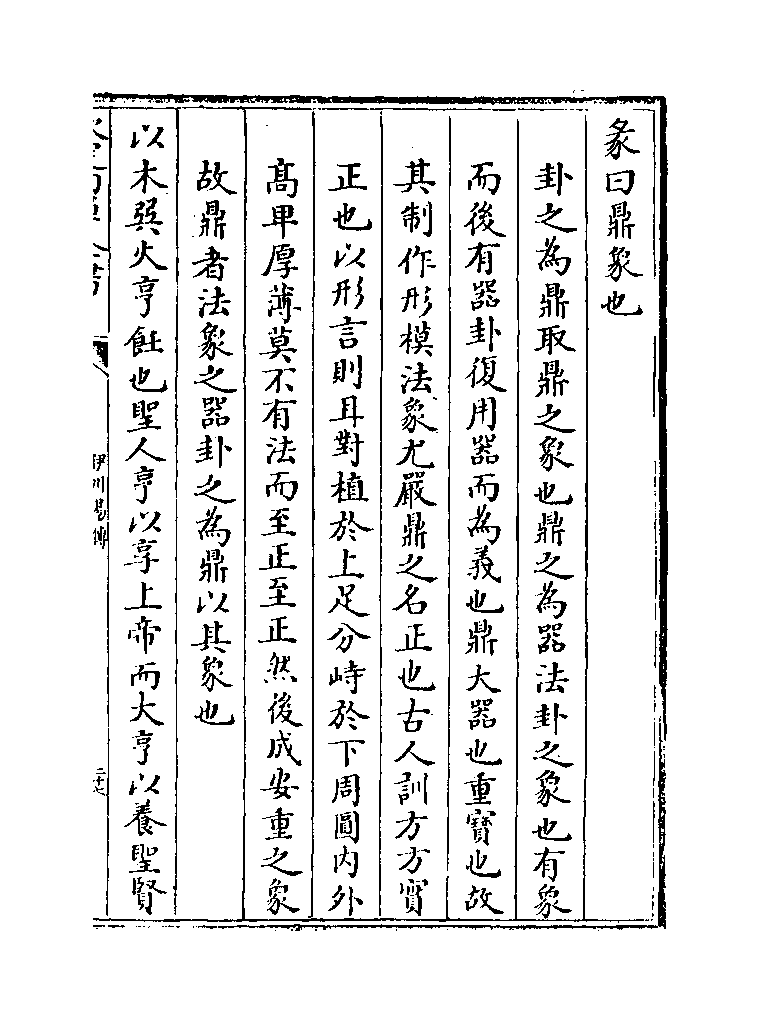 彖曰鼎象也
卦之為鼎取鼎之象也鼎之為器法卦之象也有象
而後有器卦復用器而為義也鼎大器也重寳也故
其制作形模法象尤嚴鼎之名正也古人訓方方實
正也以形言則耳對植於上足分峙於下周圓内外
髙卑厚薄莫不有法而至正至正然後成安重之象
故鼎者法象之器卦之為鼎以其象也
以木巽火亨飪也聖人亨以享上帝而大亨以養聖賢
伊川易傳
二十七